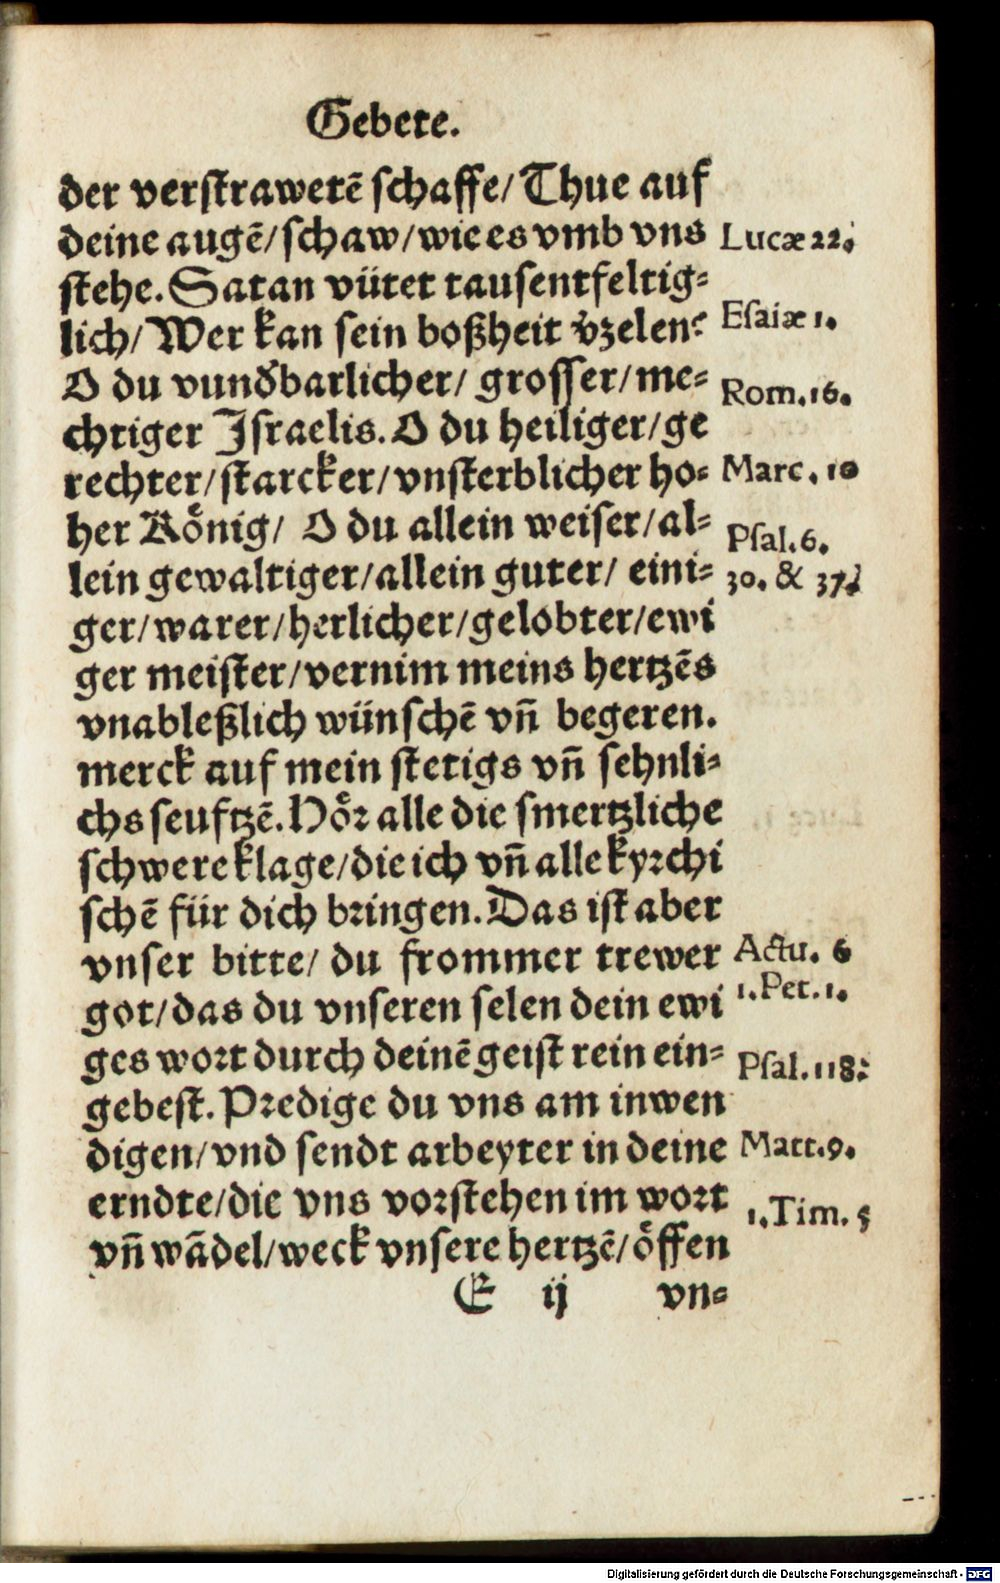 Gebete.
der verstrawetẽ schaffe/ Thue auf
deine augẽ/ schaw/ wie es vmb vns
Lucæ 22.
stehe. Satan vütet tausentfeltig-
lich/ Wer kan sein boßheit v̈zelen?
Esaiæ 1.
O du vundbarlicher/ grosser/ me-
Rom. 16.
chtiger Israelis. O du heiliger/ ge
rechter/ starcker/ vnsterblicher ho-
Marc. 10
her König/ O du allein weiser/ al-
Psal. 6.
lein gewaltiger/ allein guter/ eini-
30. & 37.
ger/ warer/ herlicher/ gelobter/ ewi
ger meister/ vernim meins hertzẽs
vnableßlich wünschẽ vñ begeren.
merck auf mein stetigs vñ sehnli-
chs seuftzẽ. Hör alle die smertzliche
schwere klage/ die ich vñ alle kyrchi
schẽ für dich bringen. Das ist aber
vnser bitte/ du frommer trewer
Actu. 6
got/ das du vnseren selen dein ewi
1. Pet. 1.
ges wort durch deinẽ geist rein ein-
Psal. 118.
gebest. Predige du vns am inwen
digen/ vnd sendt arbeyter in deine
Matt. 9.
erndte/ die vns vorstehen im wort
1. Tim. 5
vñ wãdel/ weck vnsere hertzẽ/ öffen
E ij vn-
Digitalisierung gefördert durch die Deutsche Forschungsgemeinschaft - DFG